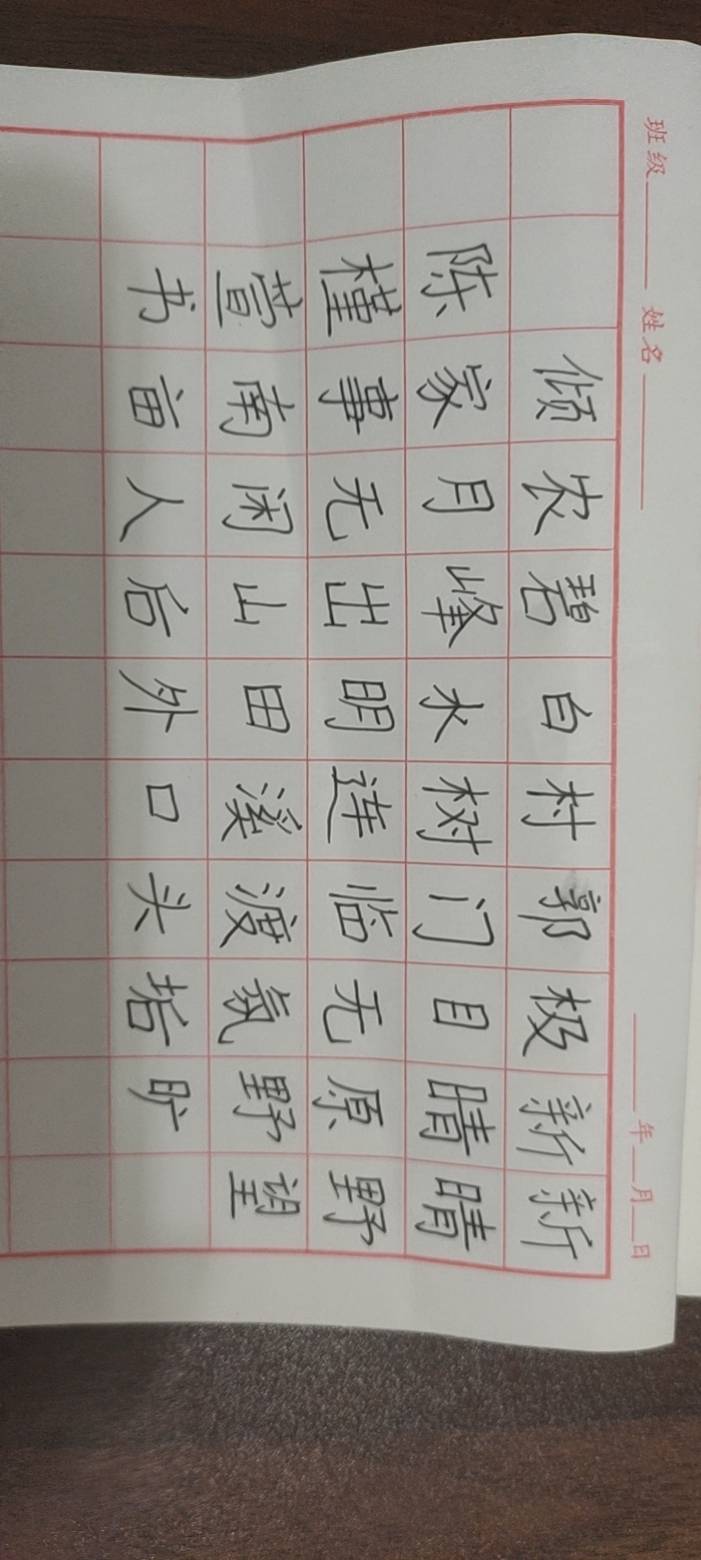 班级 姓名 年 月 日
新晴野望
新晴原野旷
极目无氛垢
郭门临渡头
村树连溪口
白水明田外
碧峰出山后
农月无闲人
倾家事南亩
陈槿萱书